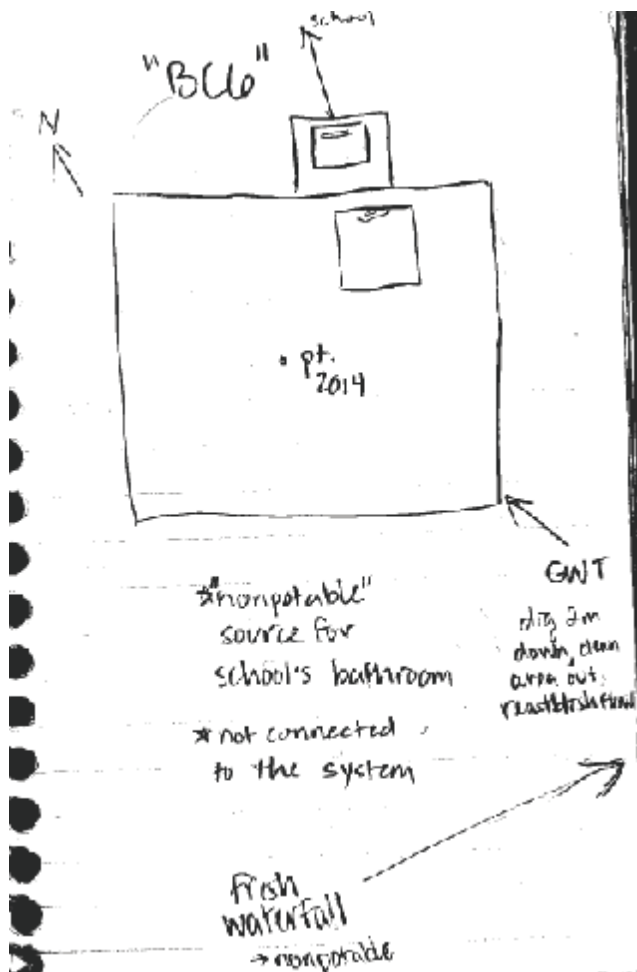 school
"BC6"
N
pt.
2014
GWT
dig 2m
down, clean
area out,
reestablish flow
*"nonpotable"
source for
school's bathroom
*not connected
to the system
Fresh
waterfall
→ nonpotable